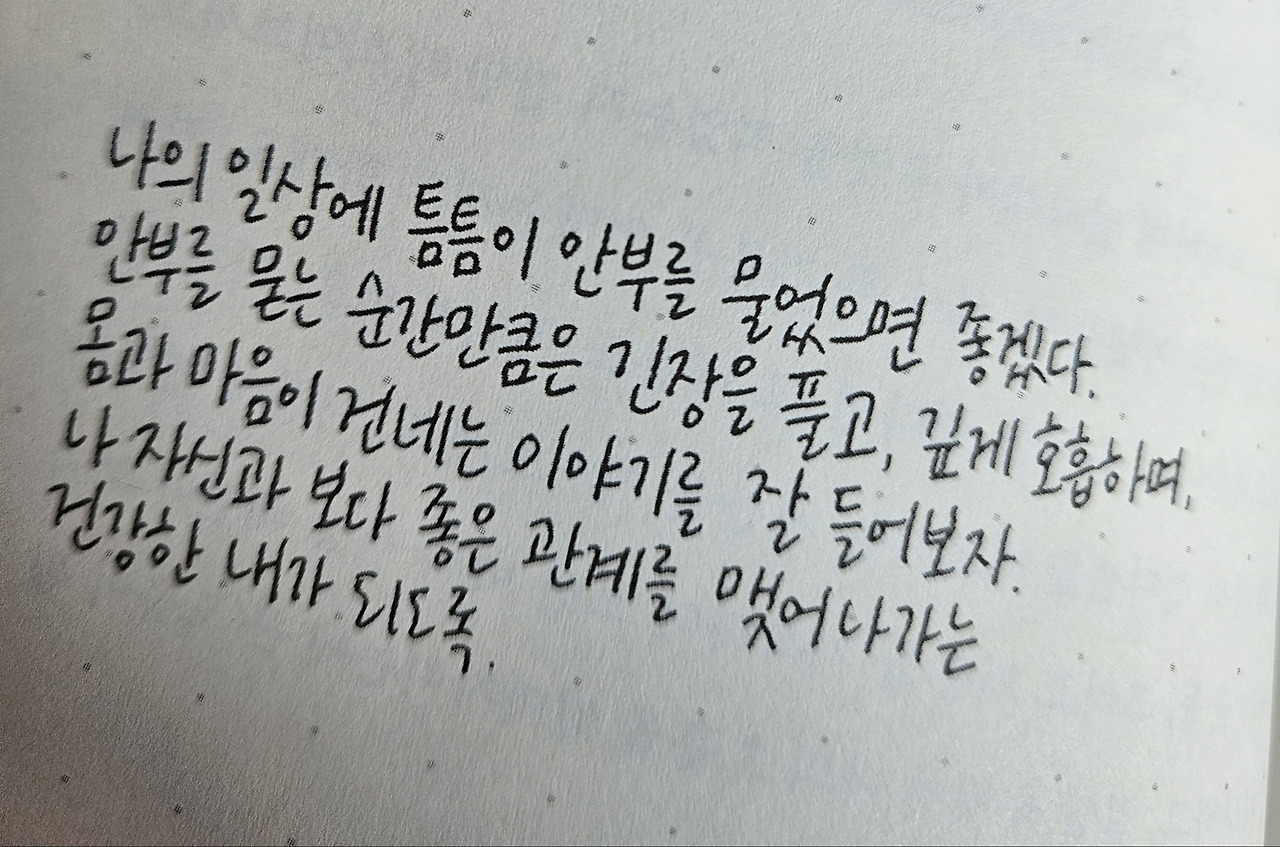 나의 일상에 틈틈이 안부를 물었으면 좋겠다.
안부를 묻는 순간만큼은 긴장을 풀고, 깊게 호흡하며,
몸과 마음이 건네는 이야기를 잘 들어보자.
나 자신과 보다 좋은 관계를 맺어나가는
건강한 내가 되도록.